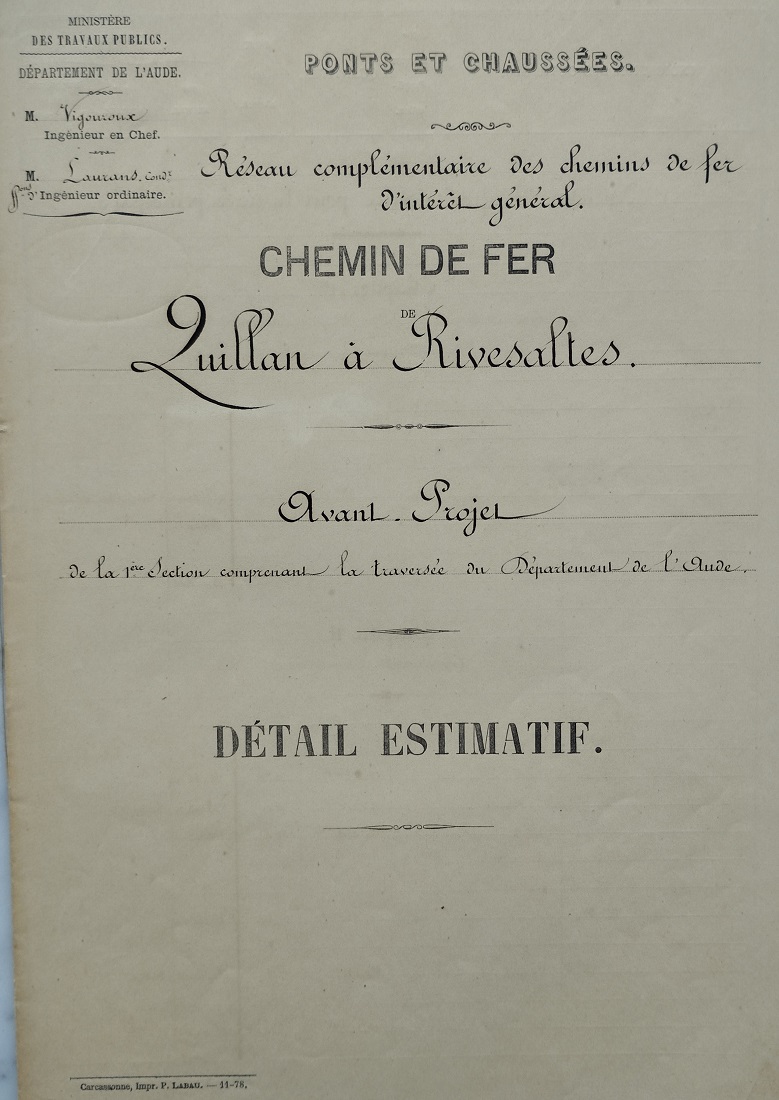 MINISTÈRE
DES TRAVAUX PUBLICS.
DÉPARTEMENT DE L'AUDE.
M. Vigouroux
Ingénieur en Chef.
M. Laurans, Condr
fons d'Ingénieur ordinaire.
PONTS ET CHAUSSÉES.
Réseau complémentaire des chemins de fer
d'intérêt général.
CHEMIN DE FER
DE
Quillan à Rivesaltes.
Avant-Projet
de la 1ère Section comprenant la traversée du Département de l'Aude.
DÉTAIL ESTIMATIF.
Carcassonne, Impr. P. LABAU. — 11-78.